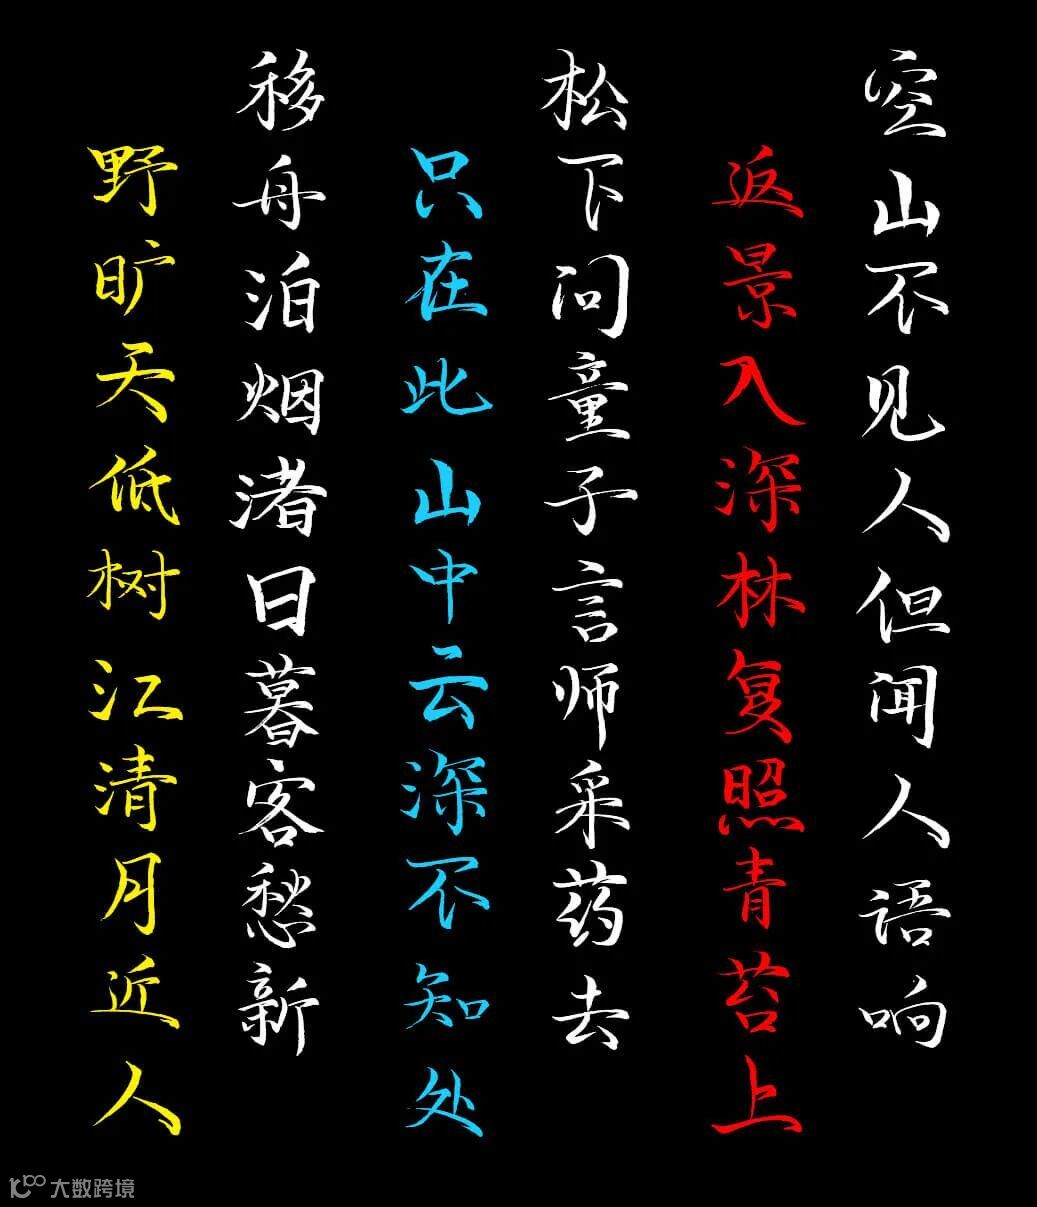 空山不见人但闻人语响
返景入深林复照青苔上
松下问童子言师采药去
只在此山中云深不知处
移舟泊烟渚日暮客愁新
野旷天低树江清月近人
大数跨境